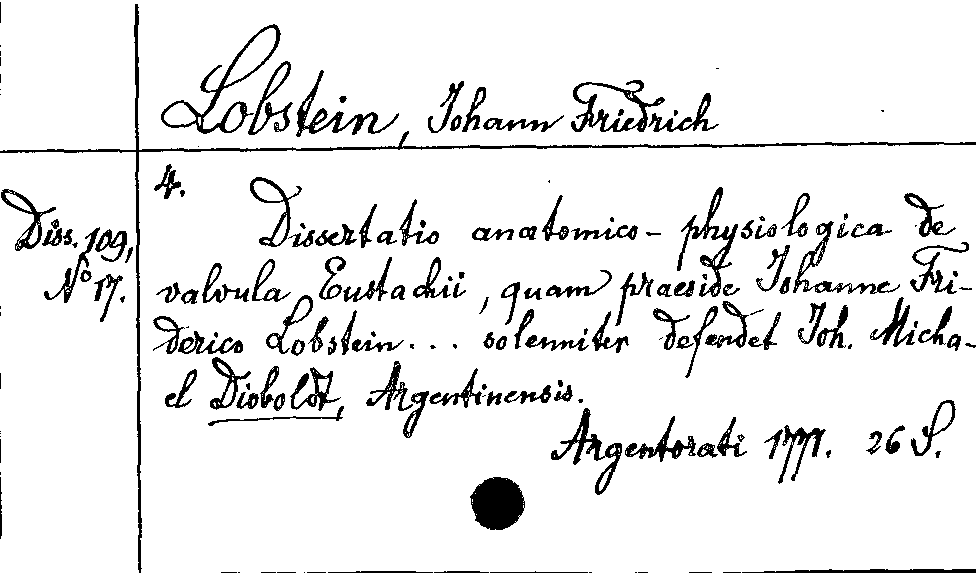 Lobstein, Johann Friedrich
4.
Diss. 109,
No 17.
Dissertatio anatomico-physiologica de
valvula Eustachii, quam praeside Johanne Fri-
derico Lobstein... solenniter defendet Joh. Micha-
el Dioboldt, Argentinensis.
Argentorati 1771. 26 S.